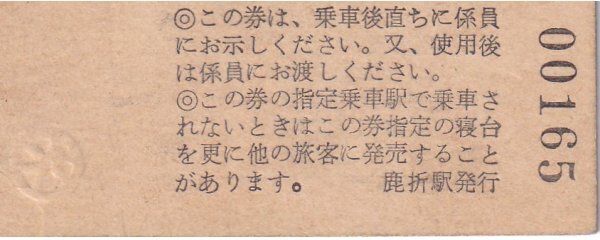 ◎この券は、乗車後直ちに係員
にお示しください。又、使用後
は係員にお渡しください。
◎この券の指定乗車駅で乗車さ
れないときはこの券指定の寝台
を更に他の旅客に発売すること
があります。 鹿折駅発行
00165